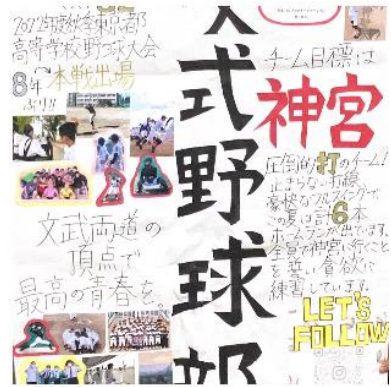 2021年度秋季東京都
高等学校野球大会
8年ぶり!!
本戦出場
文武両道の
頂点で
最高の青春を。
式野球部
チーム目標は
神宮
圧倒的打のチーム!
止まらない打線、
豪快なフルスイングで、
この夏は計6本
ホームランが出ています。
全員で神宮に行くこと
を誓い、貪欲に
練習しています。
LET'S
FOLLOW